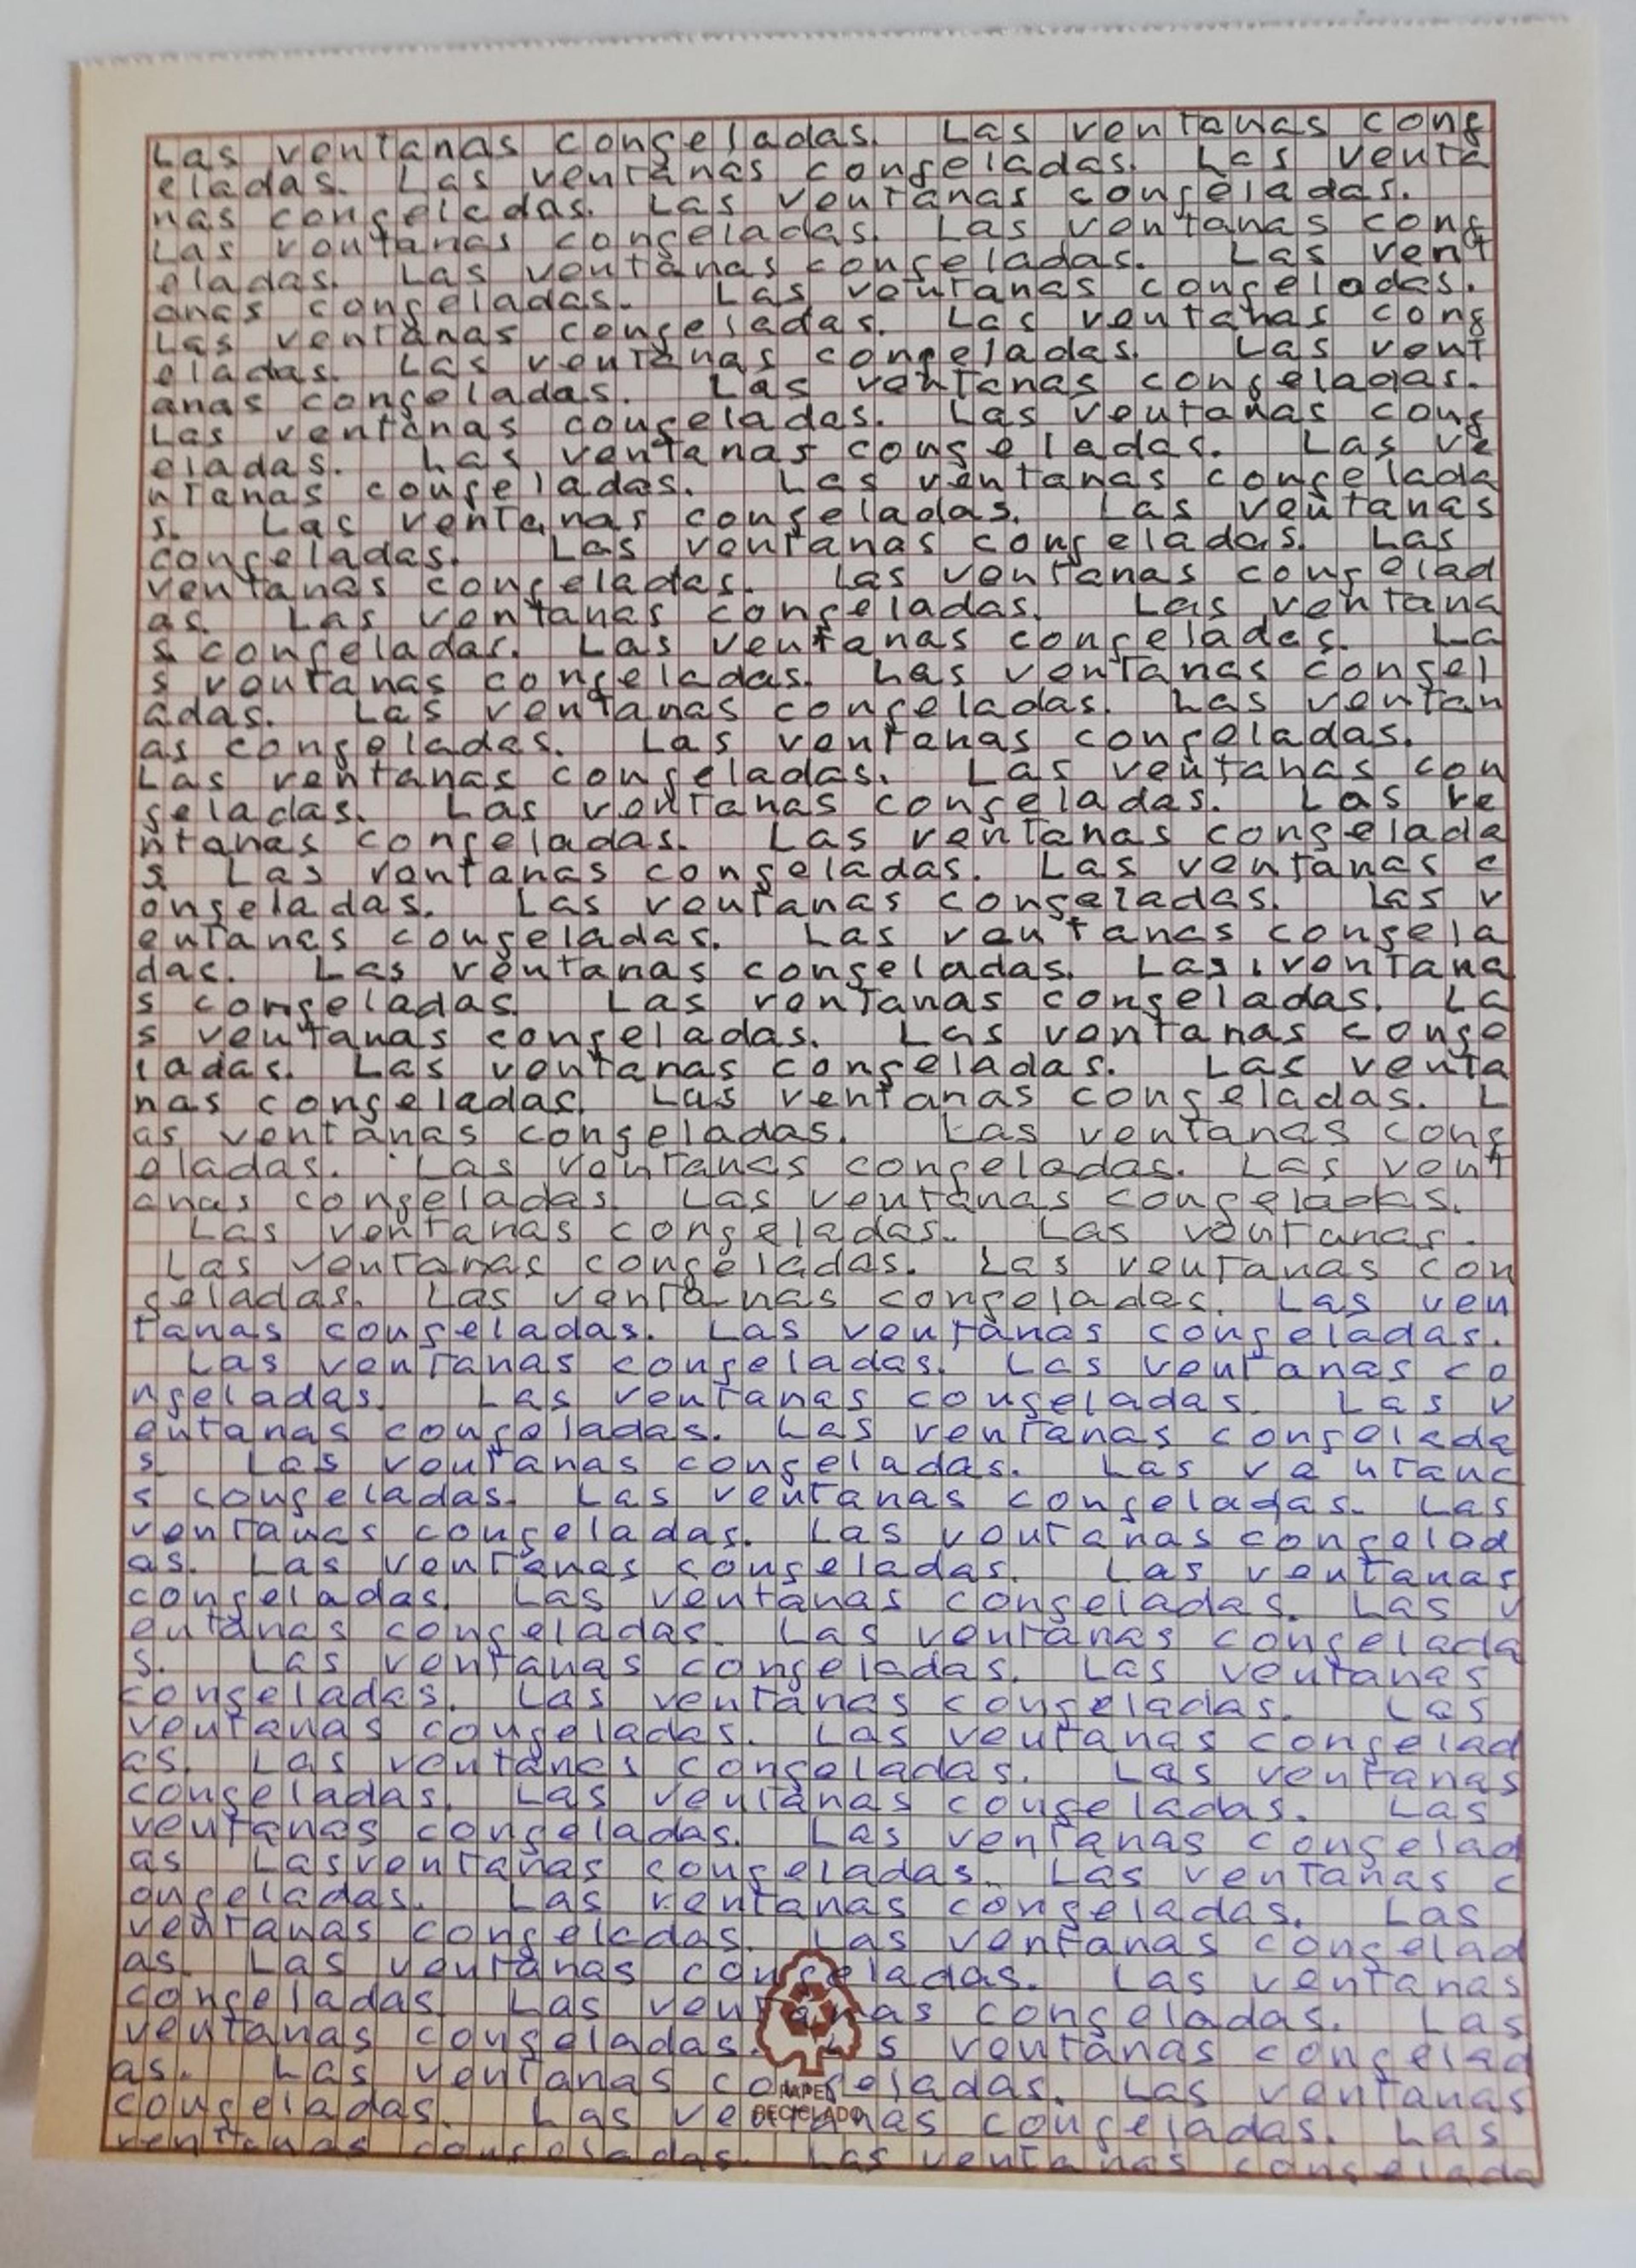 Las ventanas congeladas. Las ventanas cong
eladas. Las ventanas congeladas. Las venta
nas congeladas. Las ventanas congeladas.
Las ventanas congeladas. Las ventanas cong
eladas. Las ventanas congeladas. Las vent
anas congeladas. Las ventanas congelados.
Las ventanas congeladas. Las ventanas cong
eladas. Las ventanas congeladas. Las vent
anas congeladas. Las ventanas congeladas.
Las ventanas congeladas. Las ventanas cong
eladas. Las ventanas congeladas. Las ve
ntanas congeladas. Las ventanas congelada
s. Las ventanas congeladas. Las ventanas
congeladas. Las ventanas congeladas. Las
ventanas congeladas. Las ventanas congelad
as. Las ventanas congeladas. Las ventana
s congeladas. Las ventanas congelades. La
s ventanas congeladas. Las ventanas congel
adas. Las ventanas congeladas. Las ventan
as congeladas. Las ventanas congeladas.
Las ventanas congeladas. Las ventanas con
geladas. Las ventanas congeladas. Las ve
ntanas congeladas. Las ventanas congelada
s. Las ventanas congeladas. Las ventanas c
ongeladas. Las ventanas congeladas. Las v
entanas congeladas. Las ventanas congela
das. Las ventanas congeladas. Las ventana
s congeladas. Las ventanas congeladas. La
s ventanas congeladas. Las ventanas conge
ladas. Las ventanas congeladas. Las venta
nas congeladas. Las ventanas congeladas. L
as ventanas congeladas. Las ventanas cong
eladas. Las ventanas congeladas. Las vent
anas congeladas. Las ventanas congeladas.
Las ventanas congeladas. Las ventanas.
Las ventanas congeladas. Las ventanas con
geladas. Las ventanas congeladas. Las ven
tanas congeladas. Las ventanas congeladas.
Las ventanas congeladas. Las ventanas co
ngeladas. Las ventanas congeladas. Las v
entanas congeladas. Las ventanas congelada
s. Las ventanas congeladas. Las ventana
s congeladas. Las ventanas congeladas. Las
ventanas congeladas. Las ventanas congelad
as. Las ventanas congeladas. Las ventanas
congeladas. Las ventanas congeladas. Las v
entanas congeladas. Las ventanas congelada
s. Las ventanas congeladas. Las ventanas
congeladas. Las ventanas congeladas. Las
ventanas congeladas. Las ventanas congelad
as. Las ventanas congeladas. Las ventanas
congeladas. Las ventanas congeladas. Las
ventanas congeladas. Las ventanas congelad
as Las ventanas congeladas. Las ventanas c
ongeladas. Las ventanas congeladas. Las
ventanas congeladas. Las ventanas congelad
as. Las ventanas congeladas. Las ventanas
congeladas. Las ventanas congeladas. Las
ventanas congeladas. Las ventanas congelad
as. Las ventanas congeladas. Las ventanas
PAPEL
congeladas. Las ventanas congeladas. Las
RECICLADO
ventanas congeladas. Las ventanas congelada